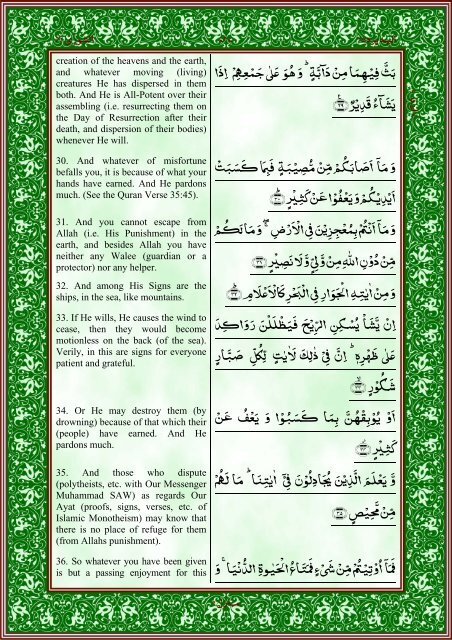 creation of the heavens and the earth,
and whatever moving (living)
creatures He has dispersed in them
both. And He is All-Potent over their
assembling (i.e. resurrecting them on
the Day of Resurrection after their
death, and dispersion of their bodies)
whenever He will.
30. And whatever of misfortune
befalls you, it is because of what your
hands have earned. And He pardons
much. (See the Quran Verse 35:45).
31. And you cannot escape from
Allah (i.e. His Punishment) in the
earth, and besides Allah you have
neither any Walee (guardian or a
protector) nor any helper.
32. And among His Signs are the
ships, in the sea, like mountains.
33. If He wills, He causes the wind to
cease, then they would become
motionless on the back (of the sea).
Verily, in this are signs for everyone
patient and grateful.
34. Or He may destroy them (by
drowning) because of that which their
(people) have earned. And He
pardons much.
35. And those who dispute
(polytheists, etc. with Our Messenger
Muhammad SAW) as regards Our
Ayat (proofs, signs, verses, etc. of
Islamic Monotheism) may know that
there is no place of refuge for them
(from Allahs punishment).
36. So whatever you have been given
is but a passing enjoyment for this
بَثَّ فِيْهِمَا مِنْ دَآبَّةٍ ؕ وَ هُوَ عَلٰى جَمْعِهِمْ اِذَا
يَشَآءُ قَدِيْرٌ ﴿۲۹﴾
وَ مَاۤ اَصَابَكُمْ مِّنْ مُّصِيْبَةٍ فَبِمَا كَسَبَتْ
اَيْدِيْكُمْ وَ يَعْفُوْا عَنْ كَثِيْرٍ ﴿۳۰﴾
وَ مَاۤ اَنْتُمْ بِمُعْجِزِيْنَ فِي الْاَرْضِ ۖۚ وَ مَا لَكُمْ
مِّنْ دُوْنِ اللّٰهِ مِنْ وَّلِيٍّ وَّ لَا نَصِيْرٍ ﴿۳۱﴾
وَ مِنْ اٰيٰتِهِ الْجَوَارِ فِي الْبَحْرِ كَالْاَعْلَامِ ﴿۳۲﴾
اِنْ يَّشَاْ يُسْكِنِ الرِّيْحَ فَيَظْلَلْنَ رَوَاكِدَ
عَلٰى ظَهْرِهٖ ؕ اِنَّ فِيْ ذٰلِكَ لَاٰيٰتٍ لِّكُلِّ صَبَّارٍ
شَكُوْرٍ ﴿۳۳﴾
اَوْ يُوْبِقْهُنَّ بِمَا كَسَبُوْا وَ يَعْفُ عَنْ
كَثِيْرٍ ﴿۳۴﴾
وَّ يَعْلَمَ الَّذِيْنَ يُجَادِلُوْنَ فِيْۤ اٰيٰتِنَا ؕ مَا لَهُمْ
مِّنْ مَّحِيْصٍ ﴿۳۵﴾
فَمَاۤ اُوْتِيْتُمْ مِّنْ شَيْءٍ فَمَتَاعُ الْحَيٰوةِ الدُّنْيَا ۚ وَ